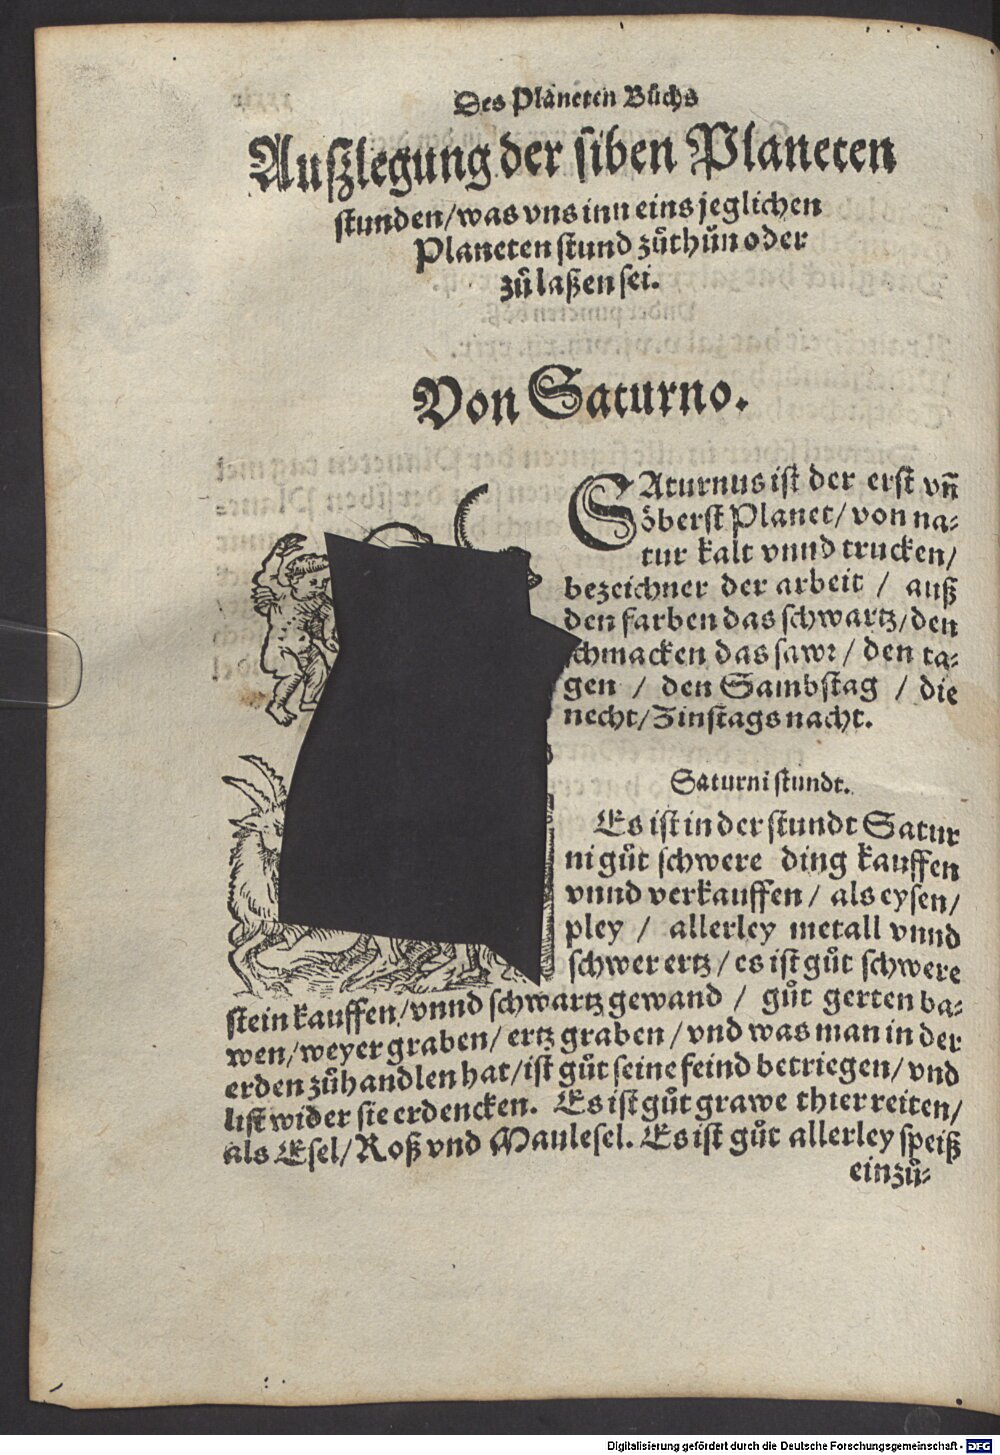 Des Planeten Bůchs
Außlegung der siben Planeten
stunden/was vns inn eins jeglichen
Planeten stund zůthůn oder
zůlaßen sei.
Von Saturno.
SAturnus ist der erst vñ
öberst Planet/ von na⸗
tur kalt vnnd trucken/
bezeichner der arbeit / auß
den farben das schwartz/den
schmacken das sawr / den ta⸗
gen / den Sambstag / die
necht/Zinstags nacht.
Saturni stundt.
Es ist in der stundt Satur
ni gůt schwere ding kauffen
vnnd verkauffen/ als eysen/
pley / allerley metall vnnd
schwer ertz/ es ist gůt schwere
stein kauffen/vnnd schwartz gewand / gůt gerten ba⸗
wen/weyer graben/ ertz graben/vnd was man in der
erden zůhandlen hat/ist gůt seine feind betriegen/vnd
list wider sie erdencken. Es ist gůt grawe thier reiten/
als Esel/Roß vnd Maulesel. Es ist gůt allerley speiß
einzů⸗
Digitalisierung gefördert durch die Deutsche Forschungsgemeinschaft - DFG